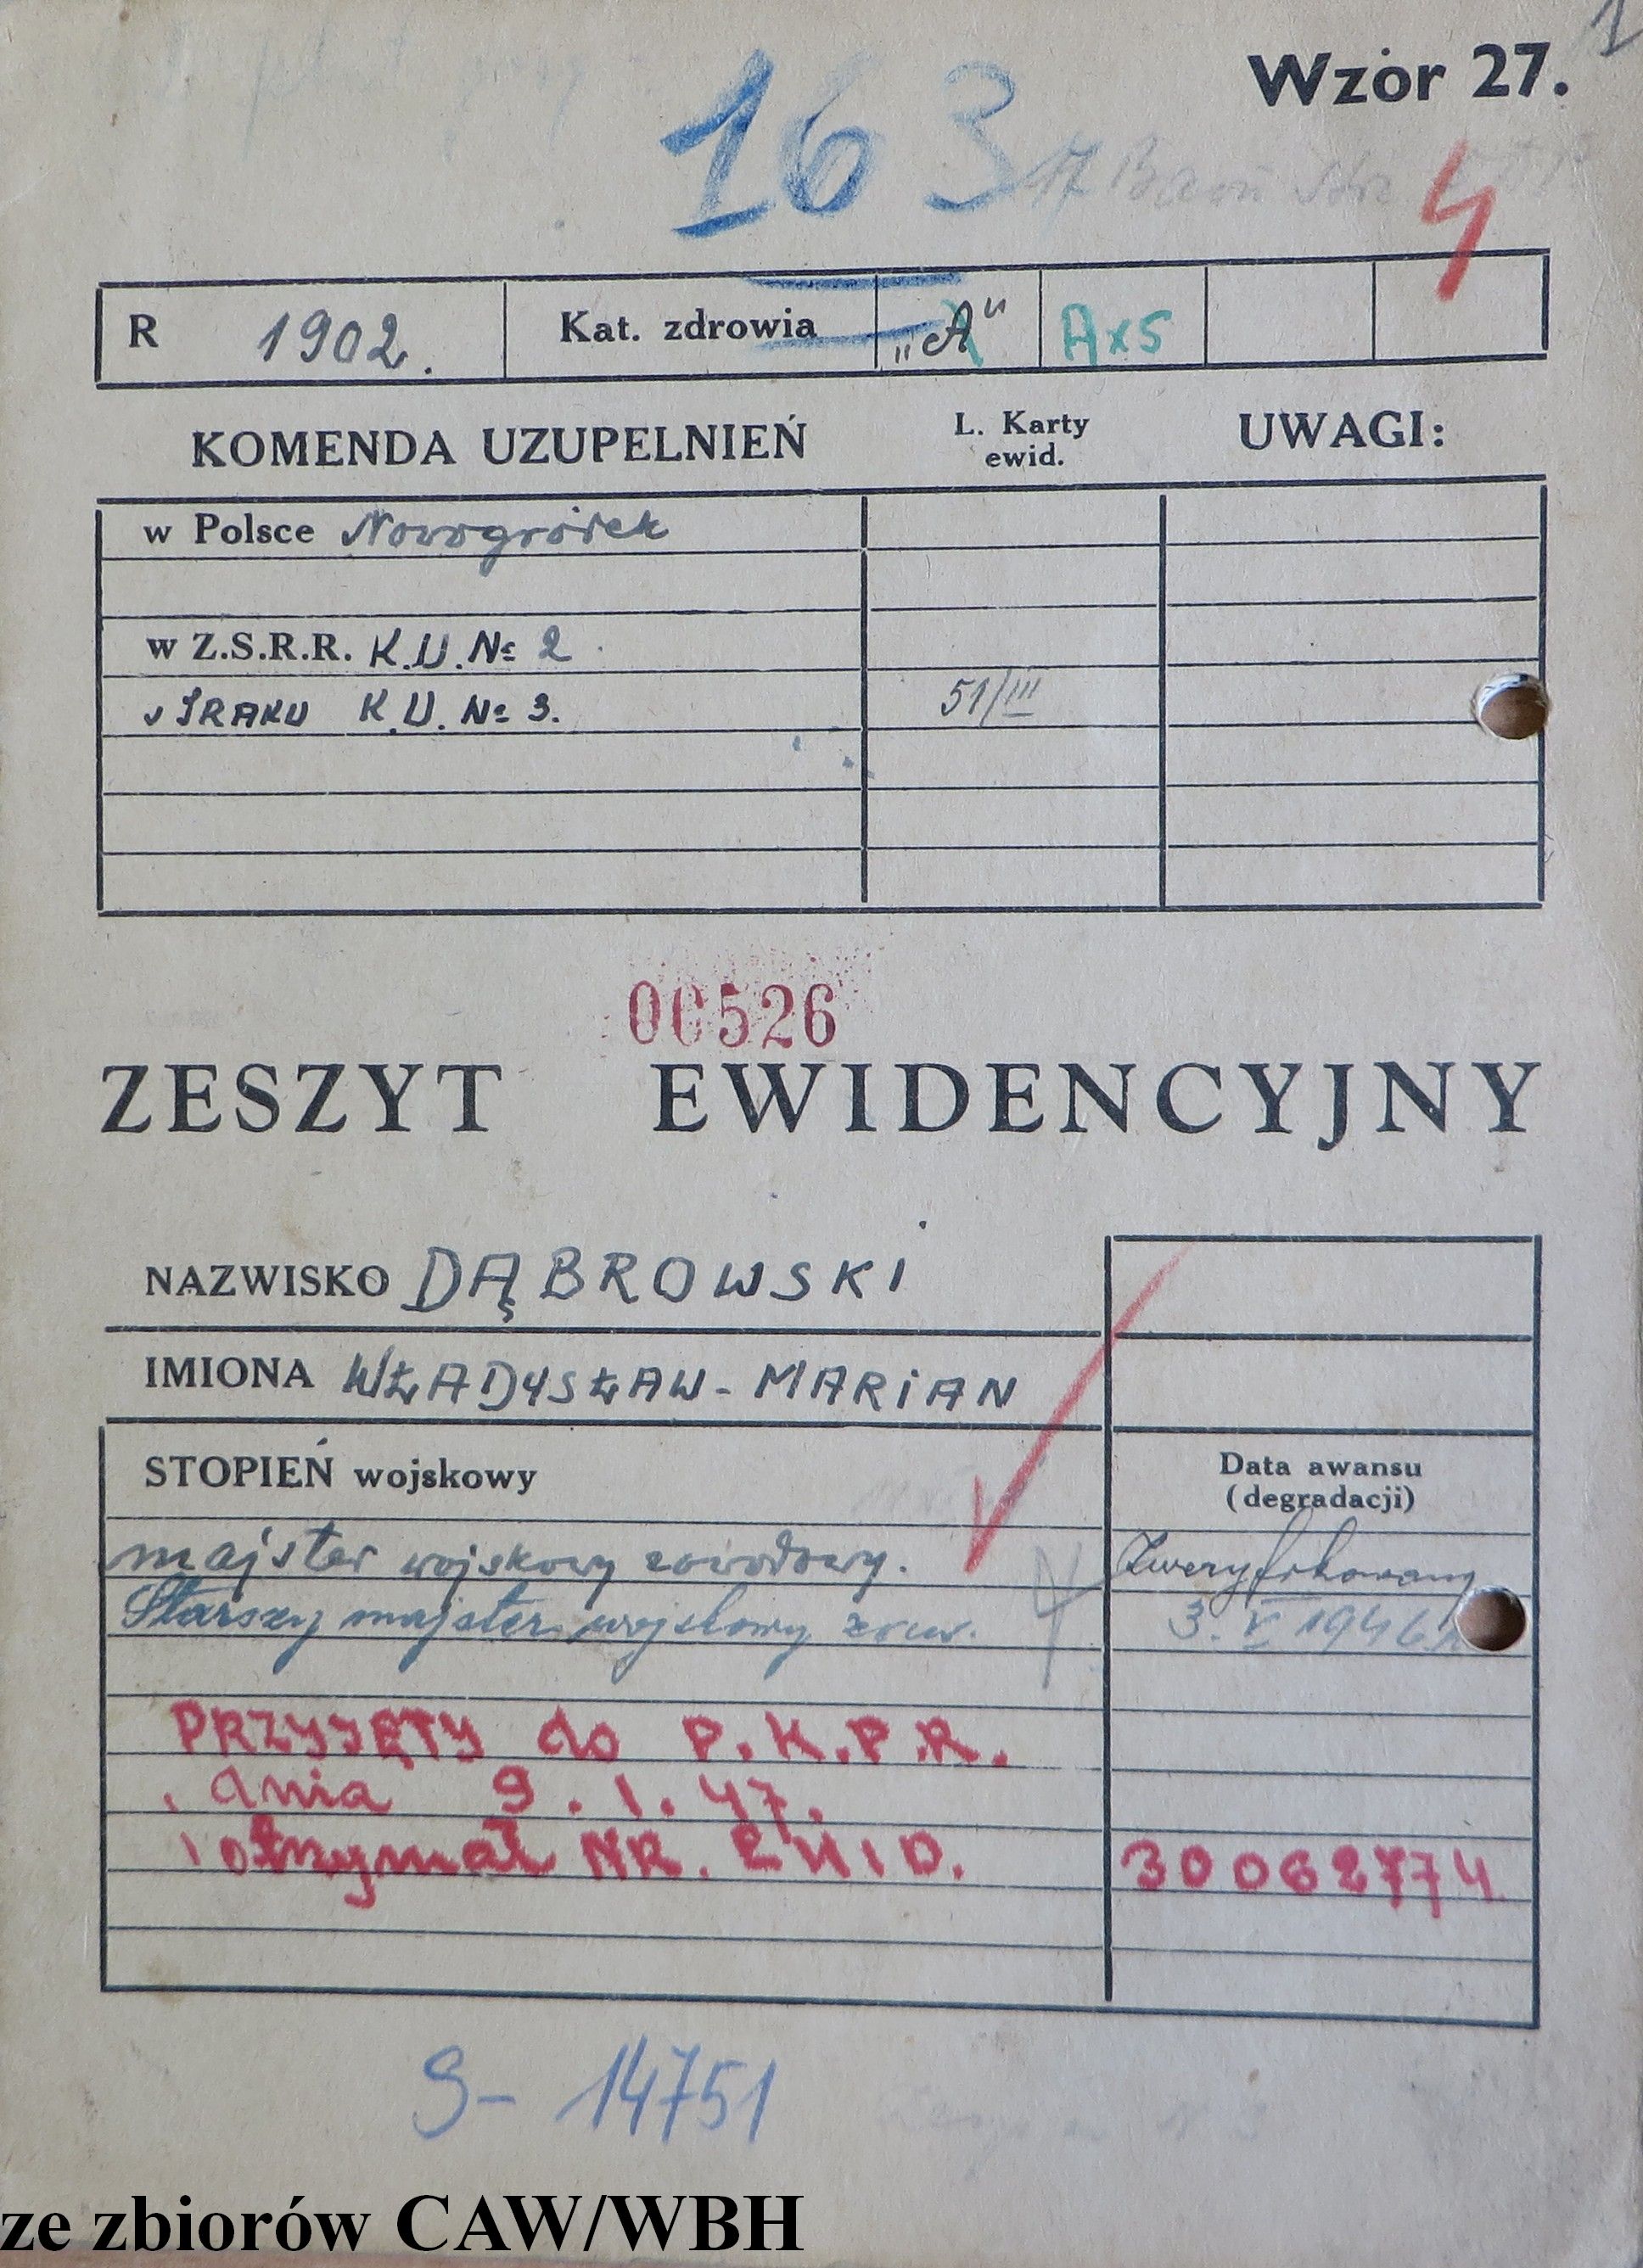 1
Wzór 27.
163
17 Baon
4
R 1902. Kat. zdrowia „A" Ax5
KOMENDA UZUPEŁNIEŃ L. Karty ewid. UWAGI:
w Polsce Nowogródek
w Z.S.R.R. K.U. № 2
w IRAKU K.U. № 3. 51/III
00526
ZESZYT EWIDENCYJNY
NAZWISKO DĄBROWSKI
IMIONA WŁADYSŁAW - MARIAN
STOPIEŃ wojskowy Data awansu
(degradacji)
majster wojskowy zawodowy. Zweryfikowany
Starszy majster wojskowy zaw. 3. V 1946 r
PRZYJĘTY do P.K.P.R.
dnia 9.1.47.
i otrzymał NR. EWID. 30062774
S- 14751
ze zbiorów CAW/WBH